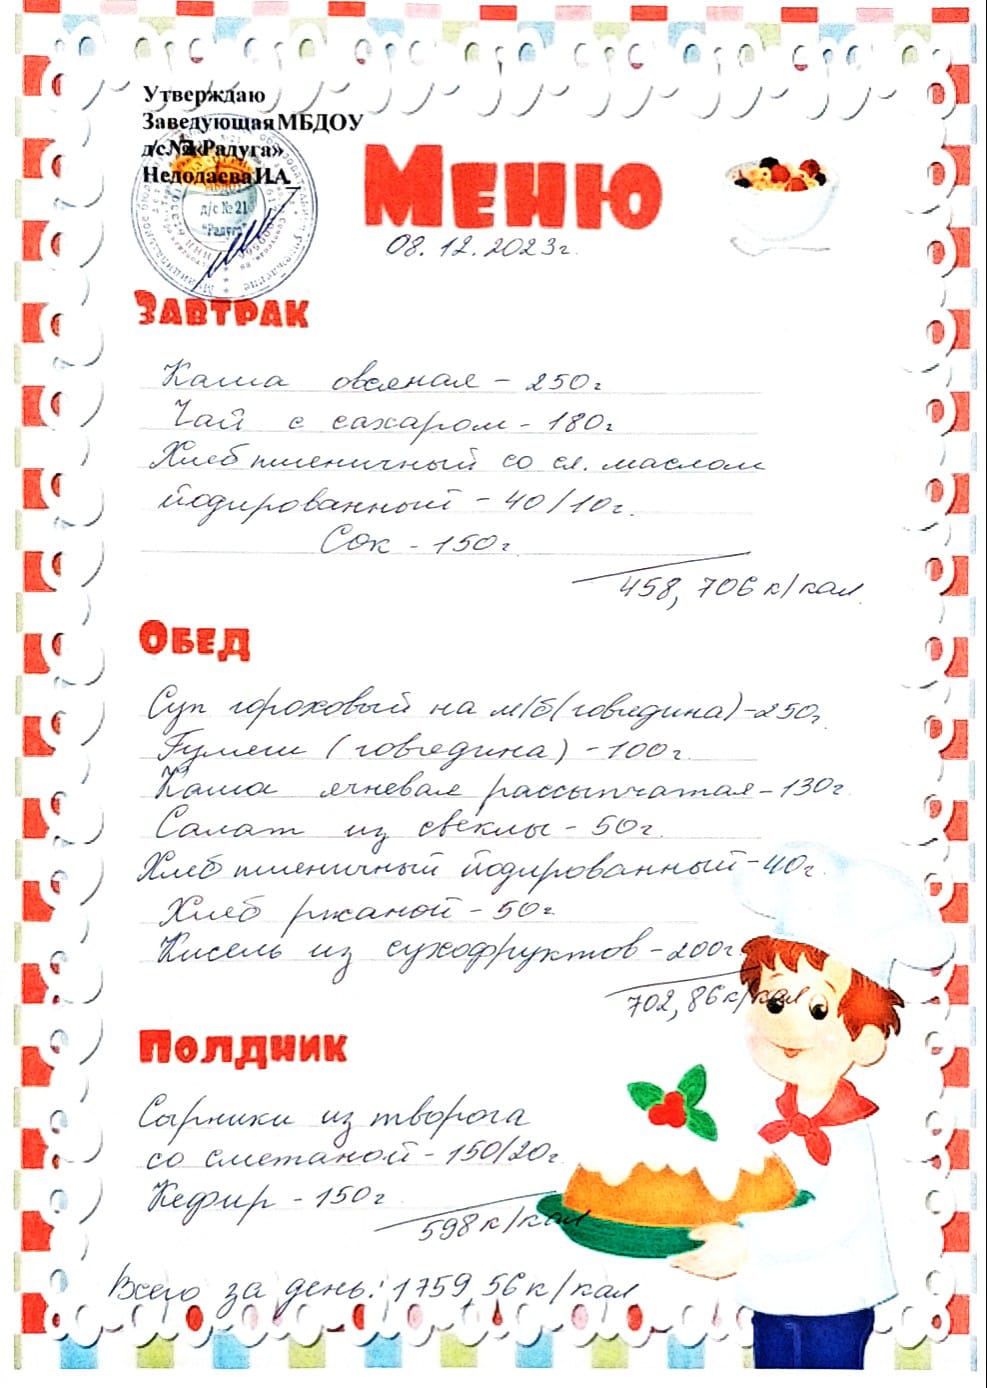 Утверждаю
Заведующая МБДОУ
д/с№ «Радуга»
Недодаева И.А.
д/с № 21
"Радуга"
Меню
08.12.2023г.
Завтрак
Каша овсяная - 250г
Чай с сахаром - 180г
Хлеб пшеничный со сл. маслом
йодированный - 40/10г.
Сок - 150г.
458,706 к/кал
Обед
Суп гороховый на м/б (говядина) - 250г.
Гуляш (говядина) - 100г.
Каша ячневая рассыпчатая - 130г.
Салат из свеклы - 50г.
Хлеб пшеничный йодированный - 40г.
Хлеб ржаной - 50г.
Кисель из сухофруктов - 200г
702,86 к/кал
Полдник
Сырники из творога
со сметаной - 150/20г.
Кефир - 150г
598 к/кал
Всего за день: 1759,56 к/кал